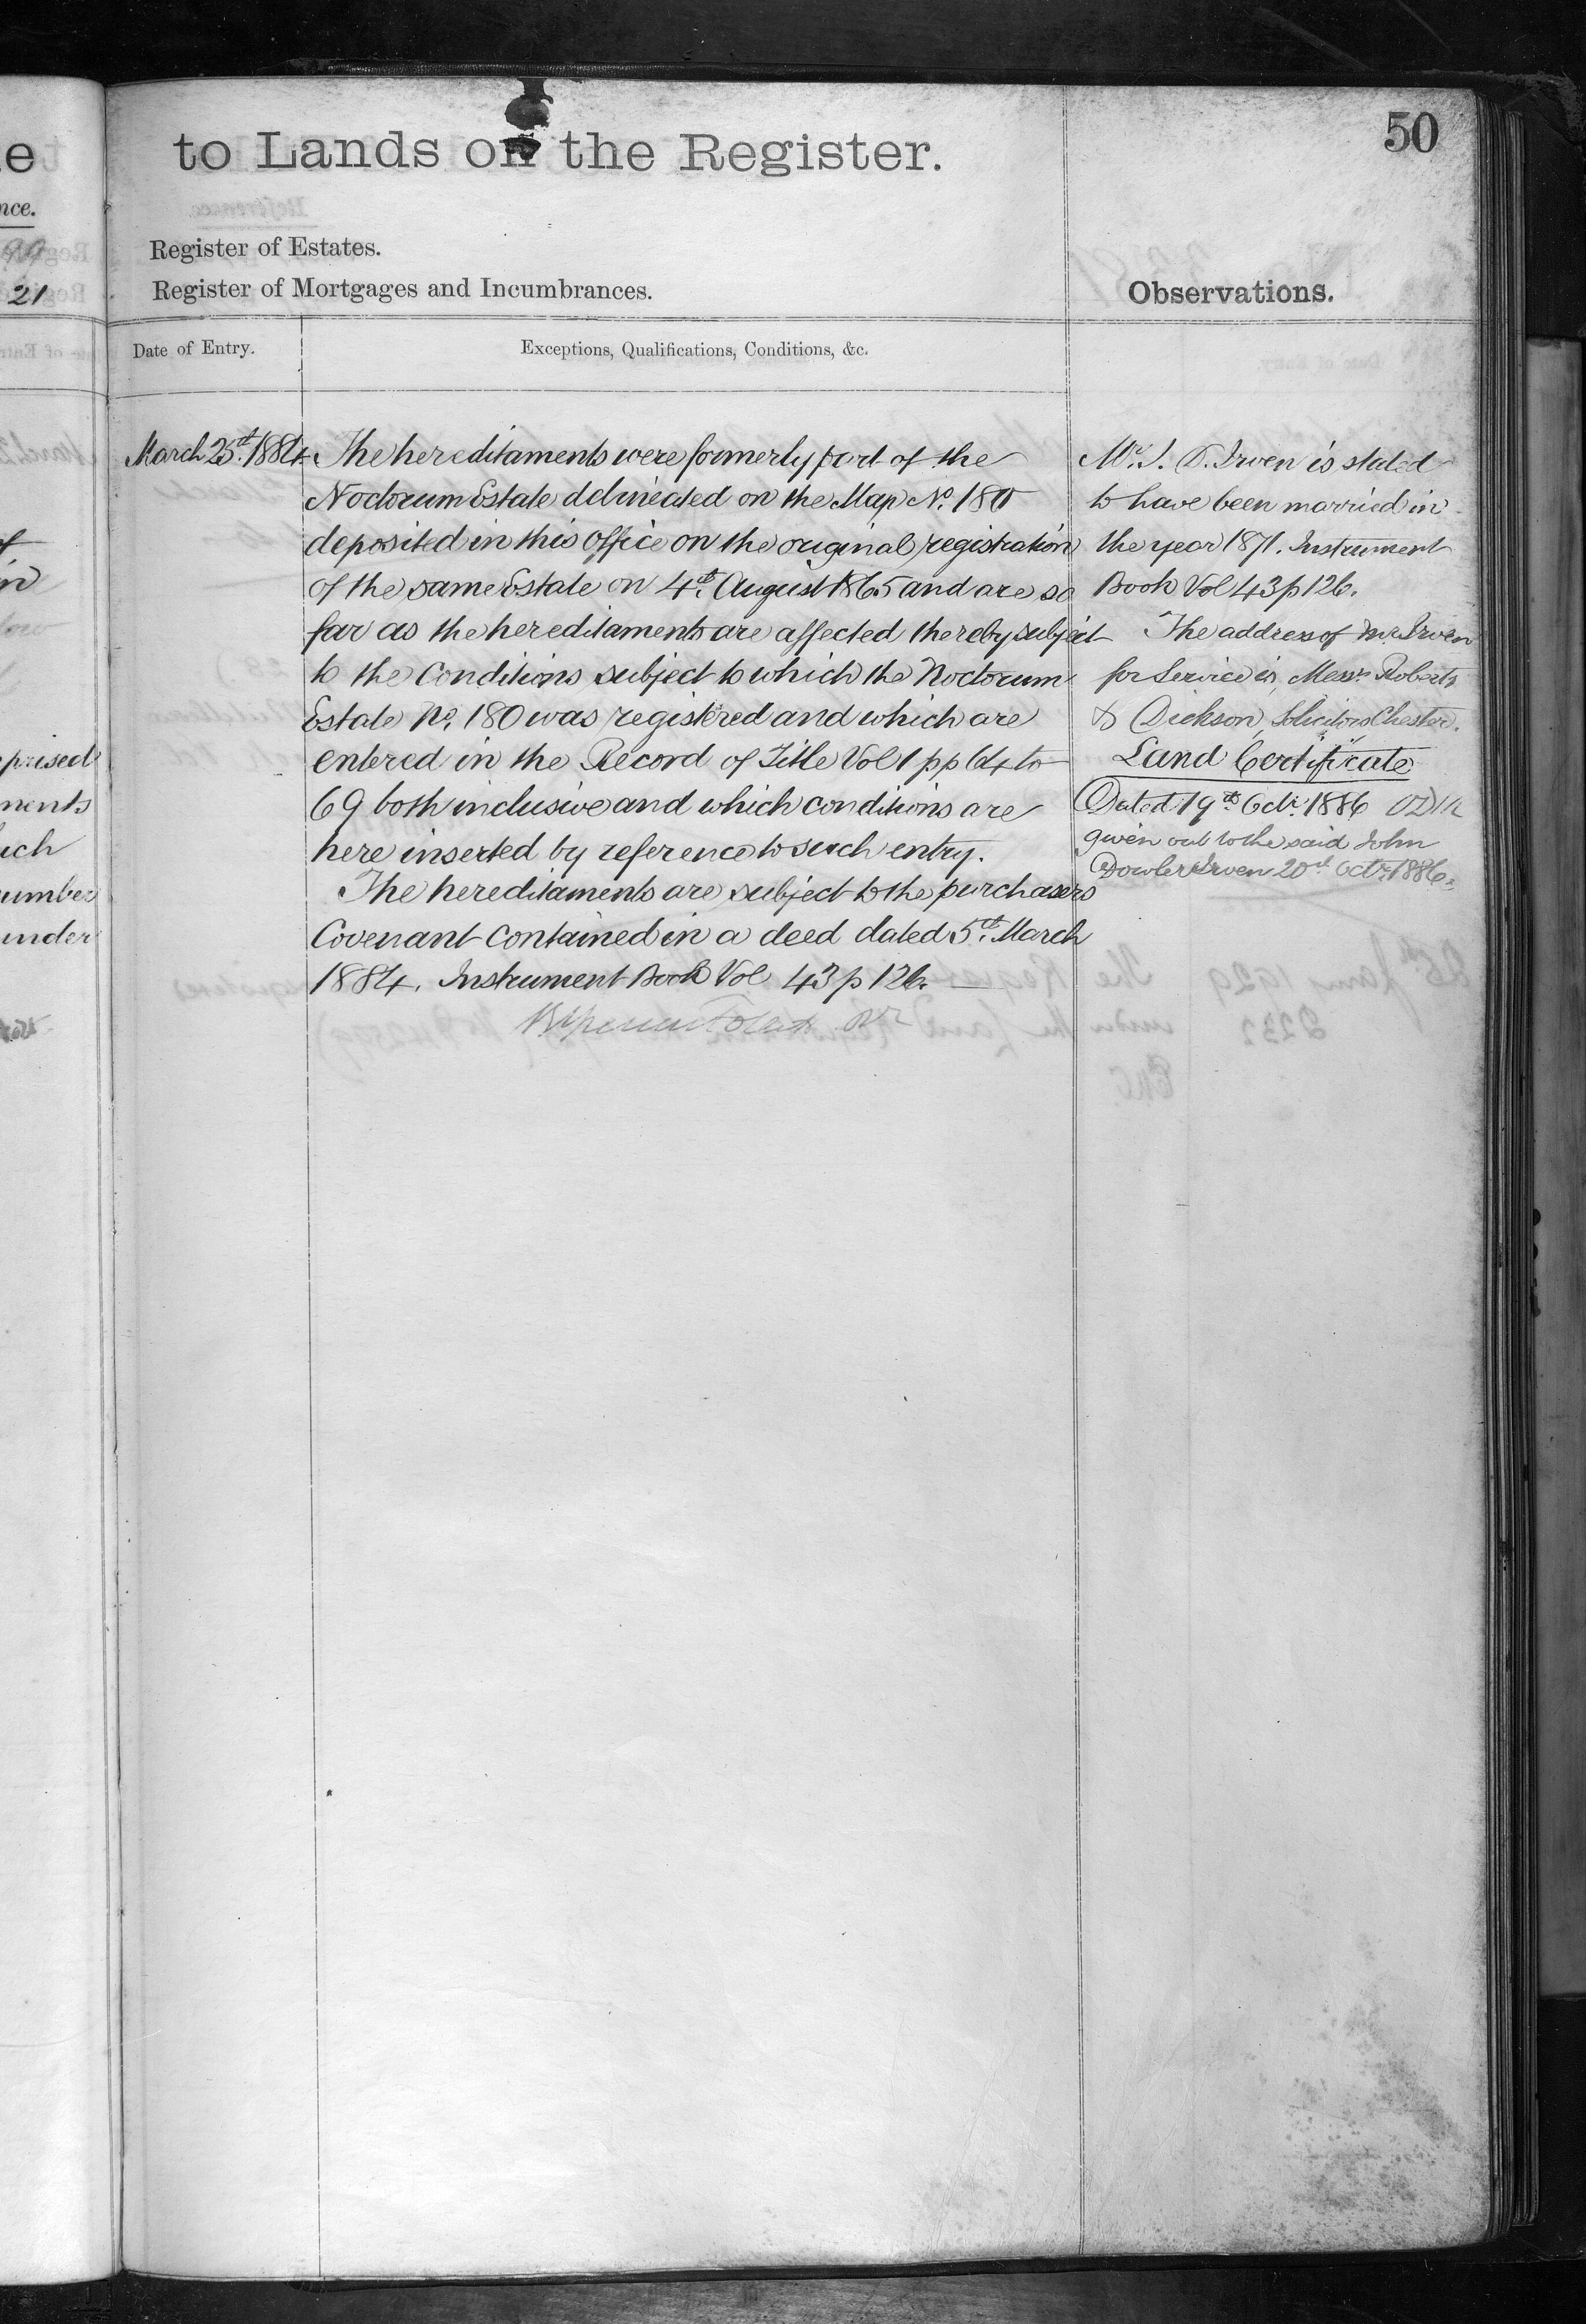 50
to Lands on the Register.
Register of Estates.
Register of Mortgages and Incumbrances.
Observations.
Date of Entry.
Exceptions, Qualifications, Conditions, &c.
March 25th. 1884
The hereditaments were formerly part of the
Noctorum Estate delineated on the Map No. 180
deposited in this Office on the original registration
of the same Estate on 4th. August 1865 and are so
far as the hereditaments are affected thereby subject
to the Conditions subject to which the Noctorum
Estate No. 180 was registered and which are
entered in the Record of Title Vol 1 pp 64 to
69 both inclusive and which conditions are
here inserted by reference to such entry.
The hereditaments are subject to the purchasers
Covenant contained in a deed dated 5th. March
1884. Instrument Book Vol 43 p 126.
Mr. J. D. Irven is stated
to have been married in
the year 1871. Instrument
Book Vol 43 p 126.
The address of Mr. Irven
for Service is, Messrs Roberts
& Dickson, Solicitors Chester.
Land Certificate
Dated 19th Octr. 1886
given out to the said John
Dowler Irven 20th Octr. 1886.
nce.
21
prised
ments
uch
umber
under